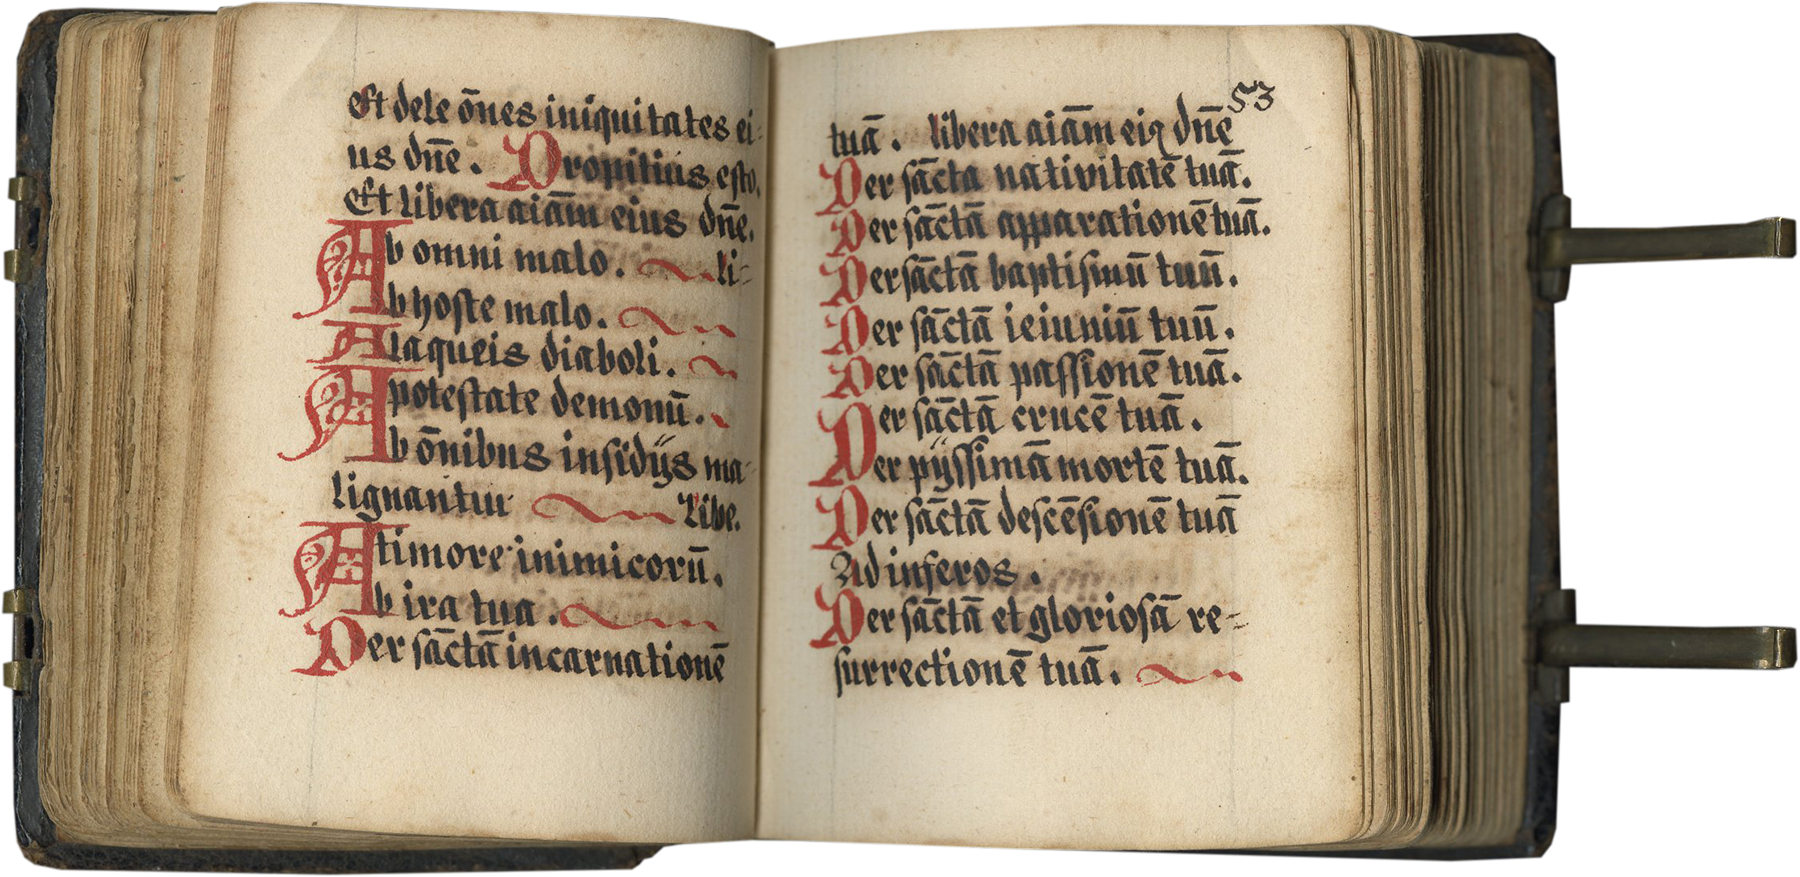 Et dele ōnes iniquitates ei-
us dn̄e. Propitius esto.
Et libera aiām eius dn̄e.
Ab omni malo. li-
Ab hoste malo.
A laqueis diaboli.
A potestate demonū.
Ab ōnibus insidijs ma-
lignantiu libe.
A timore inimicorū.
Ab ira tua.
Per sāctā incarnationē
53
tuā. libera aiām eiꝯ dn̄e
Per sācta nativitatē tuā.
Per sāctā apparationē tuā.
Per sāctā baptismū tuū.
Per sāctā ieiuniū tuū.
Per sāctā passionē tuā.
Per sāctā crucē tuā.
Per pijssimā mortē tuā.
Per sāctā descēsionē tuā
Ad inferos.
Per sāctā et gloriosā re-
surrectionē tuā.